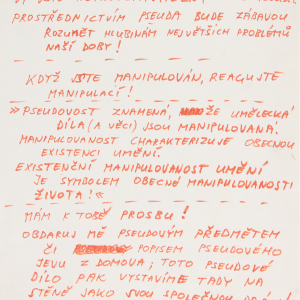 PROSTŘEDNICTVÍM PSEUDA BUDE ZÁBAVOU
ROZUMĚT HLUBINÁM NEJVĚTŠÍCH PROBLÉMŮ
NAŠÍ DOBY!
KDYŽ JSTE MANIPULOVÁN, REAGUJTE
MANIPULACÍ!
»PSEUDOVOST ZNAMENÁ, ŽE UMĚLECKÁ
DÍLA (A VĚCI) JSOU MANIPULOVANÁ.
MANIPULOVANOST CHARAKTERIZUJE OBECNOU
EXISTENCI UMĚNÍ.
EXISTENČNÍ MANIPULOVANOST UMĚNÍ
JE SYMBOLEM OBECNÉ MANIPULOVANOSTI
ŽIVOTA!«
MÁM K TOBĚ PROSBU!
OBDARUJ MĚ PSEUDOVÝM PŘEDMĚTEM
ČI POPISEM PSEUDOVÉHO
JEVU Z DOMOVA; TOTO PSEUDOVÉ
DÍLO PAK VYSTAVÍME TADY NA
STĚNĚ JAKO SVOU SPOLEČNOU